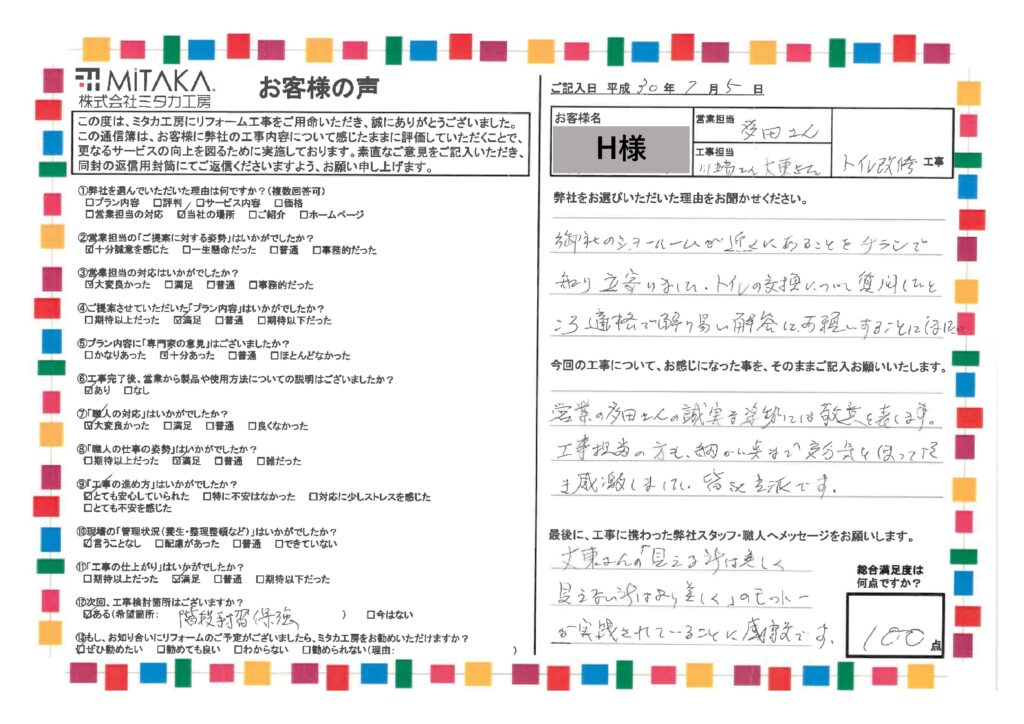 MiTAKA.
株式会社ミタカ工房
お客様の声
この度は、ミタカ工房にリフォーム工事をご用命いただき、誠にありがとうございました。
この通信簿は、お客様に弊社の工事内容について感じたままに評価していただくことで、
更なるサービスの向上を図るために実施しております。素直なご意見をご記入いただき、
同封の返信用封筒にてご返信くださいますよう、お願い申し上げます。
①弊社を選んでいただいた理由は何ですか？(複数回答可)
□プラン内容 □評判 □サービス内容 □価格
□営業担当の対応 ☑当社の場所 □ご紹介 □ホームページ
②営業担当の「ご提案に対する姿勢」はいかがでしたか？
☑十分誠意を感じた □一生懸命だった □普通 □事務的だった
③営業担当の対応はいかがでしたか？
☑大変良かった □満足 □普通 □事務的だった
④ご提案させていただいた「プラン内容」はいかがでしたか？
□期待以上だった ☑満足 □普通 □期待以下だった
⑤プラン内容に「専門家の意見」はございましたか？
□かなりあった ☑十分あった □普通 □ほとんどなかった
⑥工事完了後、営業から製品や使用方法についての説明はございましたか？
☑あり □なし
⑦「職人の対応」はいかがでしたか？
☑大変良かった □満足 □普通 □良くなかった
⑧「職人の仕事の姿勢」はいかがでしたか？
□期待以上だった ☑満足 □普通 □雑だった
⑨「工事の進め方」はいかがでしたか？
☑とても安心していられた □特に不安はなかった □対応に少しストレスを感じた
□とても不安を感じた
⑩現場の「管理状況(養生・整理整頓など)」はいかがでしたか？
☑言うことなし □配慮があった □普通 □できていない
⑪「工事の仕上がり」はいかがでしたか？
□期待以上だった ☑満足 □普通 □期待以下だった
⑫次回、工事検討箇所はございますか？
☑ある(希望箇所: 階段 補強 ) □今はない
⑬もし、お知り合いにリフォームのご予定がございましたら、ミタカ工房をお勧めいただけますか？
☑ぜひ勧めたい □勧めても良い □わからない □勧められない(理由: )
ご記入日 平成 30 年 7 月 5 日
お客様名
H様
営業担当
多田さん
工事担当
大東さん
トイレ改修 工事
弊社をお選びいただいた理由をお聞かせください。
御社のショールームが近くにあることをチラシで
知り立寄りました。トイレの交換について質問したと
ころ適格で解り易い解答にお願いすることにしました。
今回の工事について、お感じになった事を、そのままご記入お願いいたします。
営業の多田さんの誠実な姿勢には敬意を表します。
工事担当の方も、細かい点まで気をはって
感激しました。皆さん立派です。
最後に、工事に携わった弊社スタッフ・職人へメッセージをお願いします。
大東さんの「見える所は美しく
見えない所はより美しく」のモットー
が実践されていることに感激です。
総合満足度は
何点ですか？
100点